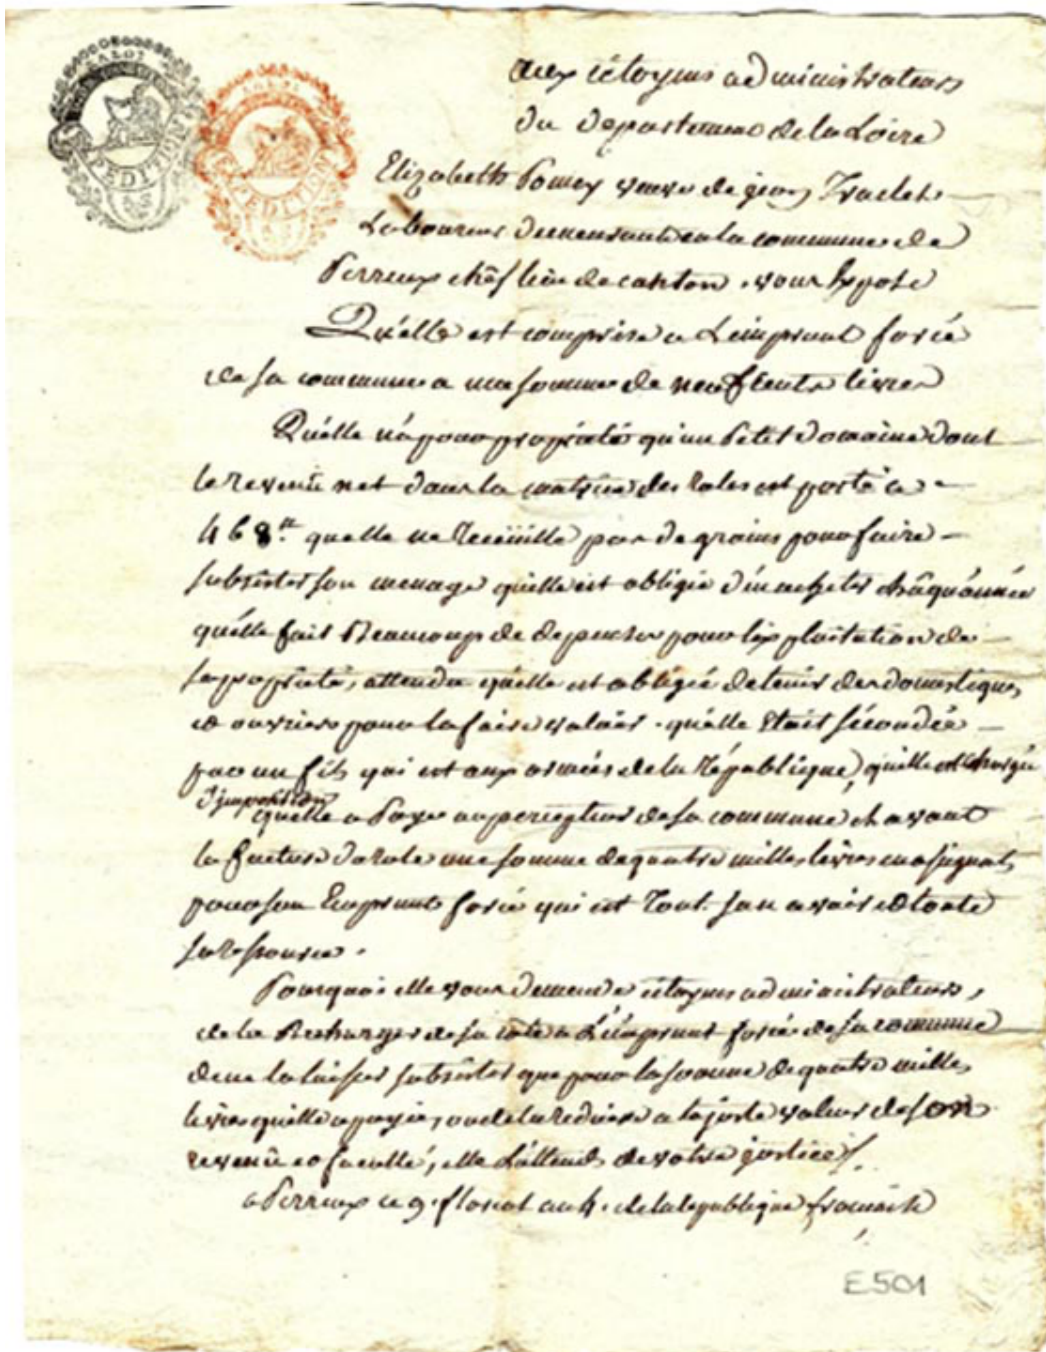 aux citoyens administrateurs
du departement de la Loire
Elizabeth Pomey veuve de jean
Laboureur demeurant en la commune de
Perreux chef lieu de canton . vous Expose
Qu'elle est comprise a Lemprunt forcé
de sa commune a une somme de neuf Cents livres
Qu'elle n'a pour propriété qu'un Petit Domaine dont
le revenu net dans la matrice des roles est porté a
468 ₶ quelle ne Receuille pas de grains pour faire
subsister son menage quelle est obligée d'en acheter châqu'année
qu'elle fait Beaucoup de depenses pour l'exploitation de
sa propriété, attendu qu'elle est obligée de tenir des domestiques
et ouvriers pour la faire valoir . qu'elle était sécondée
par un fils qui est aux armées de la République, quelle est chargée
d'imposition
quelle a Payé au percepteur de sa commune et avant
la facture du role une somme de quatre milles livres en asignats
pour son Emprunt forcé qui est Tout son avoir et toute
sa ressource .
Pourquoi elle vous demande citoyens administrateurs,
de la Decharger de sa cote a L'emprunt forcé de sa commune
de ne la laisser subsister que pour la somme de quatre mille
livres quelle a payée, ou de la reduire a la juste valeur de son
revenu et faculté, elle L'attend de votre justice /
a Perreux ce 9 . floreal an 4 . de la republique francaise
E 501
PEDITION
PEDITION